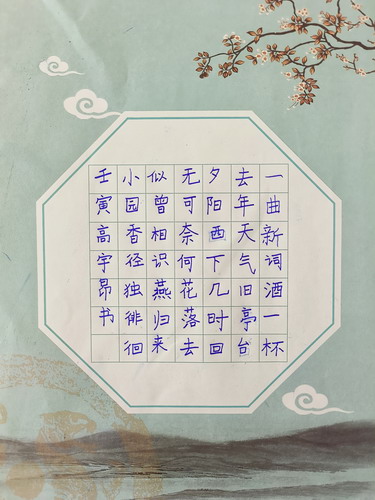 一曲新词酒一杯
去年天气旧亭台
夕阳西下几时回
无可奈何花落去
似曾相识燕归来
小园香径独徘徊
壬寅高宇昂书